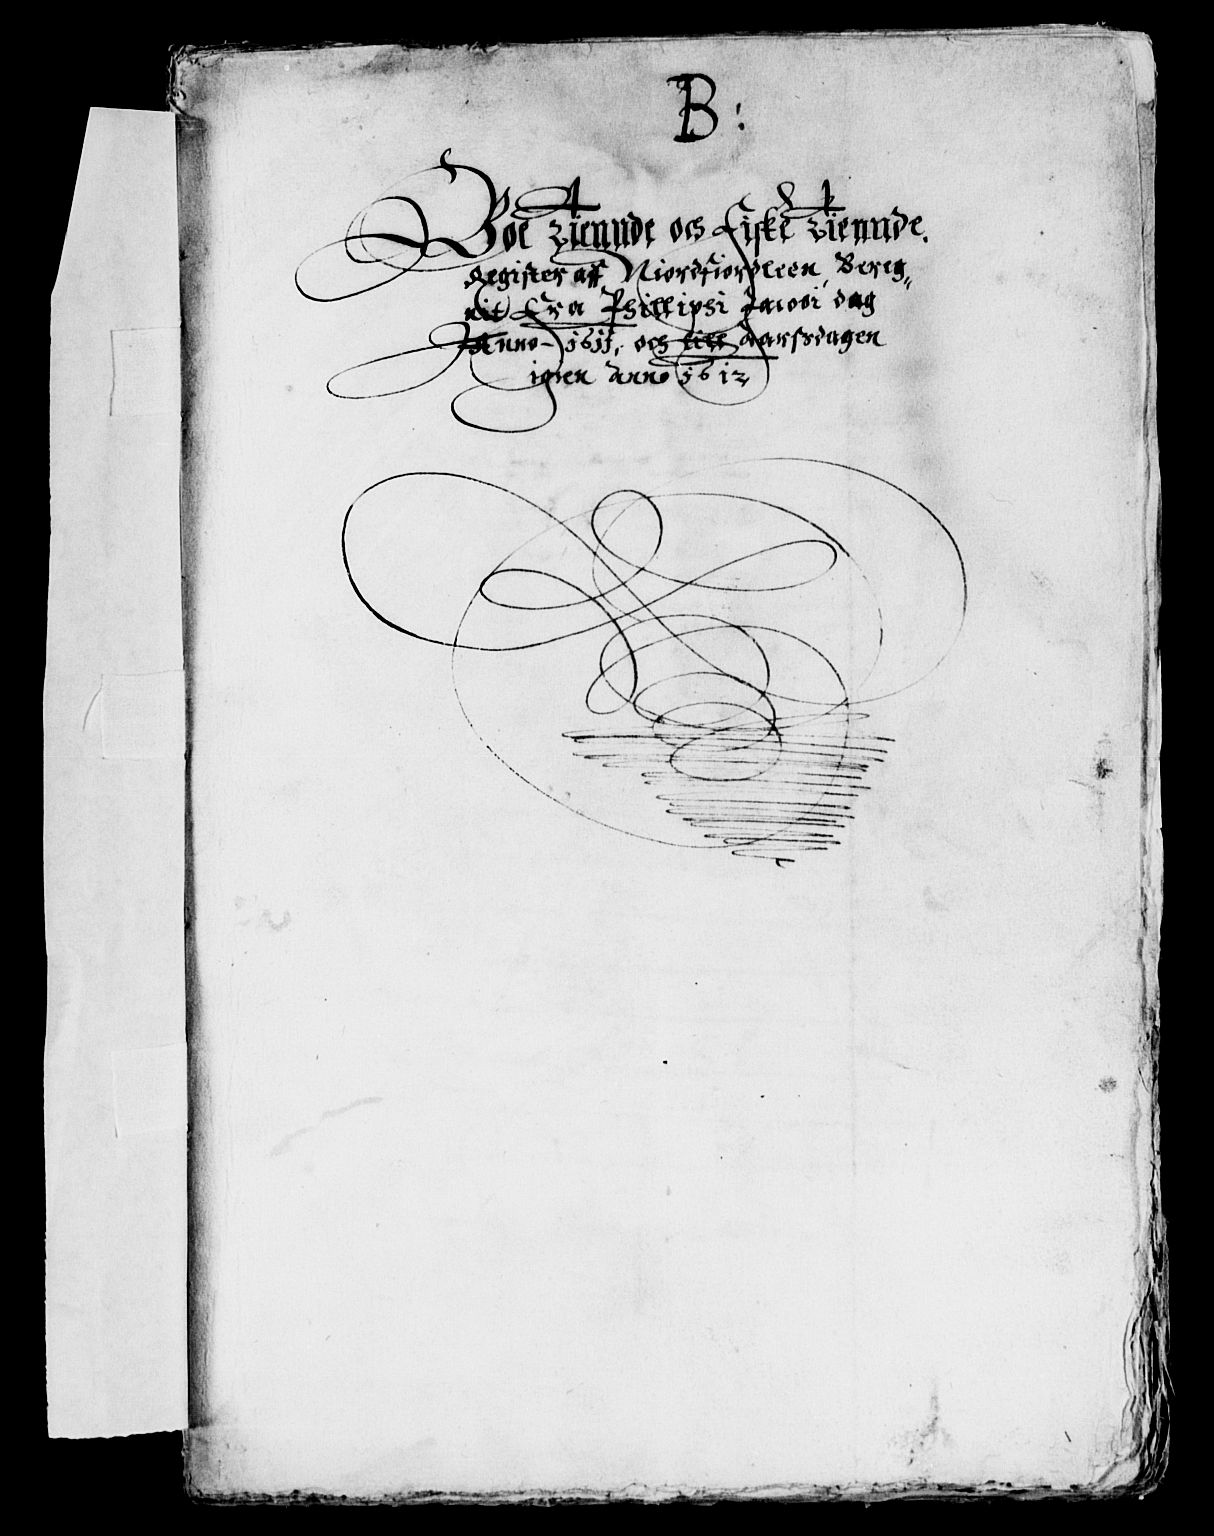 B:
Boe Tiennde och Fiske Tiennde.
Register aff Niordfiordleen, Bereg„
nit Fra Philliphi Jacobi dag
Anno 1611, och till Aarssdagen
igien Anno 1612